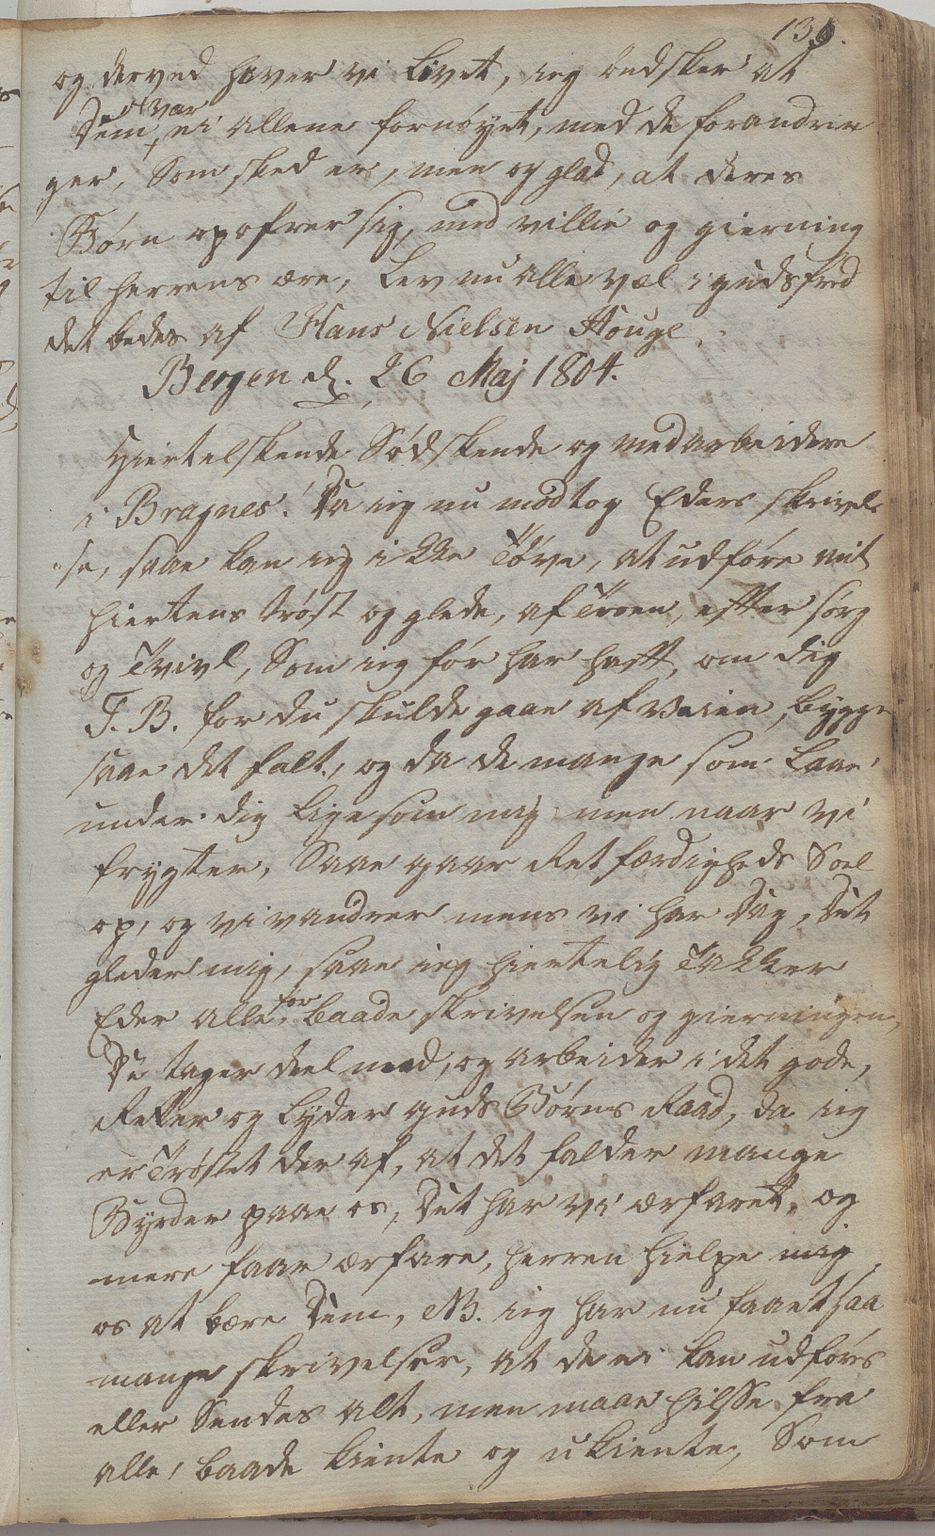 136.
og derved haver vi Livet, ieg öndsker at
Dem var ei allene fornöyet, med de forandrin
ger, Som sked er, men og glad, at deres
Börn opofrer sig, med villie og gierning
til Herrens ære, Lev nu alle vel i gudsfred
det bedes af Hans Nielsen Houge.
Bergen d. 26 Maj 1804.
Hiertelskende Södskende og medarbeidere
i Bragnes! Da ieg nu modtog Eders skrivel-
se, saa kan ieg ikke Töve, at udföre mit
hiertens tröst og glede, af Troen, efter sorg
og Tvivl, Som ieg för har haft, om dig
J. B. for du skulde gaae af veien, bygge
saae det falt, og da de mange som laae
under dig ligesom mig men naar vi
frygter, Saa gaar Retfærdigheds Soel
op, og vi vandrer mens vi har Dag, Det
gleder mig, saa ieg hiertelig Takker
Eder alle, for baade skrivelsen og gierningen,
De tager deel med, og arbeider i det gode,
Retter og lyder guds Börns Raad, da ieg
er Tröstet der af, at det falder mange
Byrder paae os, Det har vi ærfaret, og
mere faar ærfare, Herren hielpe mig
os at bære Dem, NB. ieg har nu faaet saa
mange skrivelser, at de ei kan udföres
eller Sendes alt, men maae hilse fra
alle, baade kiente og ukiente, Som